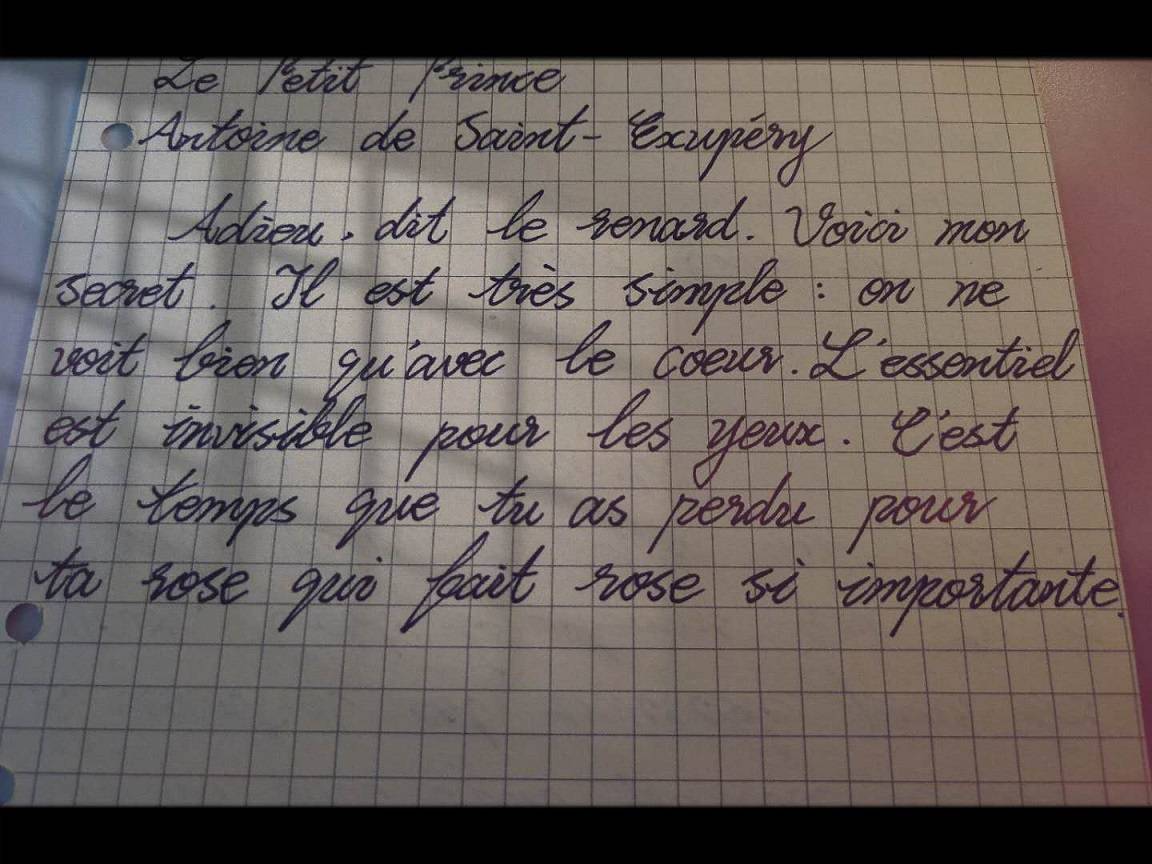 Le Petit Prince
Antoine de Saint-Exupéry
Adieu, dit le renard. Voici mon
secret. Il est très simple : on ne
voit bien qu'avec le coeur. L'essentiel
est invisible pour les yeux. C'est
le temps que tu as perdu pour
ta rose qui fait rose si importante.